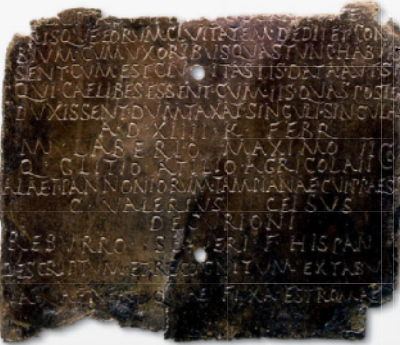 RISQUE EORUM CIVITATEM DEDIT ET CON
BIUM CUM UXORIBUS QUAS TUNC HAB
SENT CUM EST CIVITAS IIS DATA AUT S
QUI CAELIBES ESSENT CUM IIS QUAS POSTEA
DUXISSENT DUMTAXAT SINGULI SINGULA
A D XIIII K FEBR
M LABERIO MAXIMO II
Q GLITIO ATILIO AGRICOLA II
ALAE I PANNONIORUM TAMPIANAE CUI PRAEST
C VALERIUS CELSUS
DECURIONI
REBURRO SEVERI F HISPAN
DESCRIPTUM ET RECOGNITUM EX TABU
LA AENEA QUAE FIXA EST ROMAE